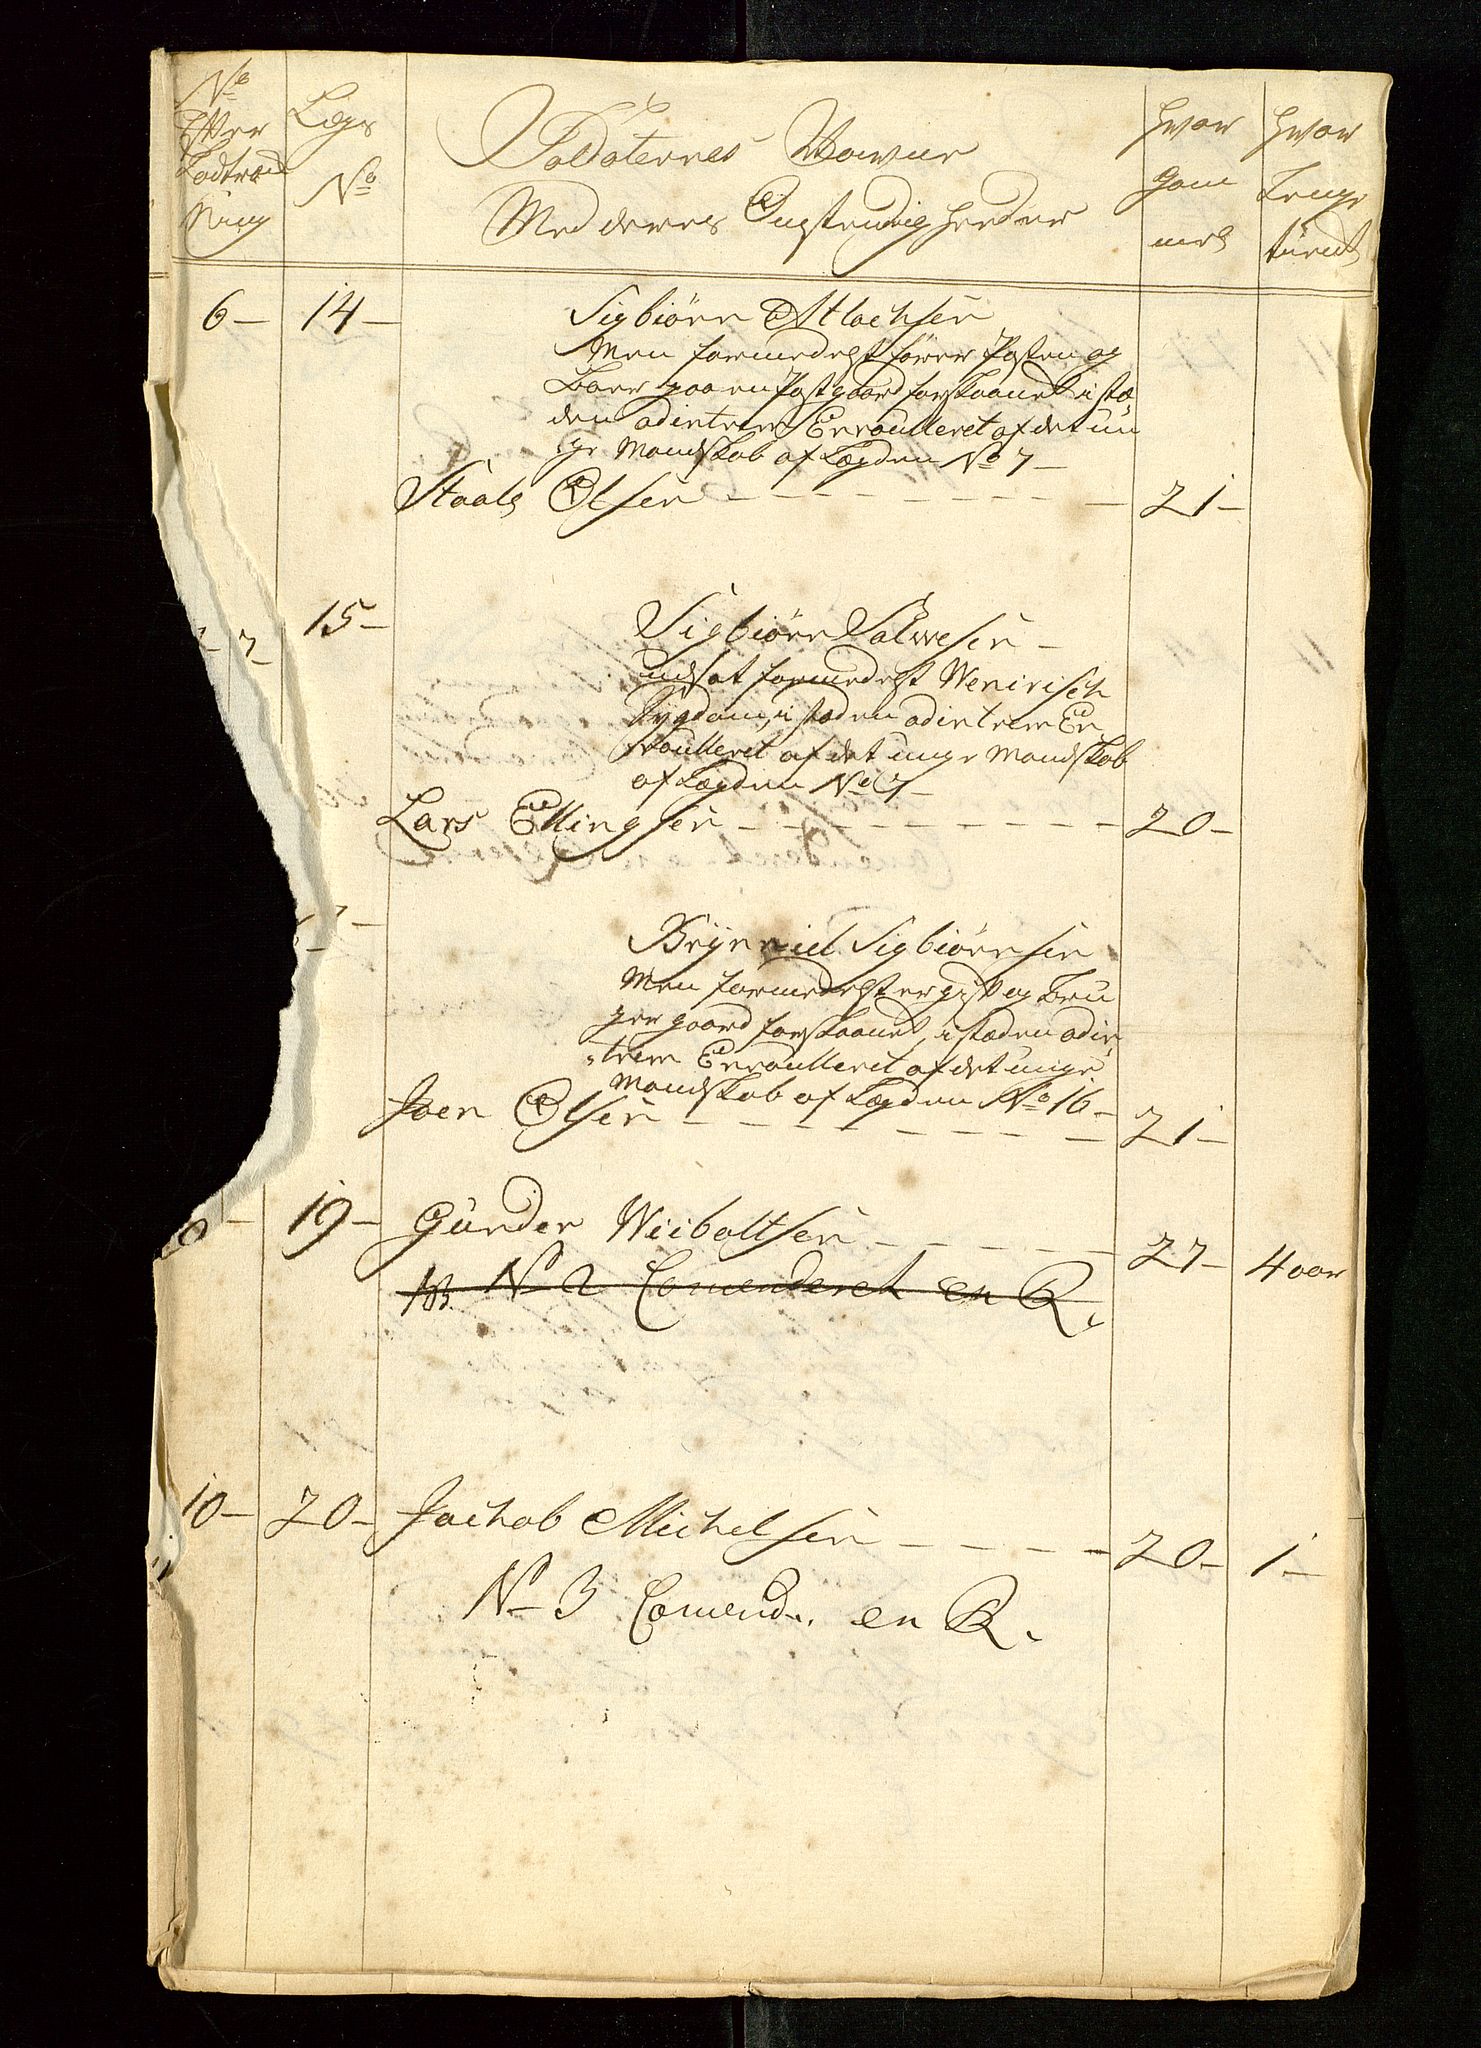 No Efter Lodtræk Ning
Legs No
Soldaternes Navne
Med derres Omstendigheder
Hvor Gam mel
Hvor Lenge tient
6 – 14 – Sigbiørn Atlachsen
Men formedelst fører Posten og
Boer paa en Postgaard forskaanet i stæ
den adintrim Enroulleret af det un
ge Mandskab af Lægden No 7 –
Staale Olsen – – – – – – – – 21 –
7 – 15 – Sigbiørn Salvesen –
udsat formedelst Wenirisch
Sygdom, i stæden adintrim En
roulleret af det unge Mandskab
af Lægden No 7 –
Lars Ellingsen – – – – – – – – 20 –
7 –
Brynniel Sigbiørnsen
Men formedelst er gift og Bru
ger gaard forskaanet, i stæden adin
trim Enroulleret af det unge
Mandskab af Lægden No 16 –
Joen Olsen – – – – – – – – 21 –
19 – Gunder Wiiboltsen – – – – – 27 – 4 aar
NB. No 2 Comenderet en R.
10 – 20 – Jachob Michelsen – – – – – 20 – 1 –
No 3 Comend. en R.